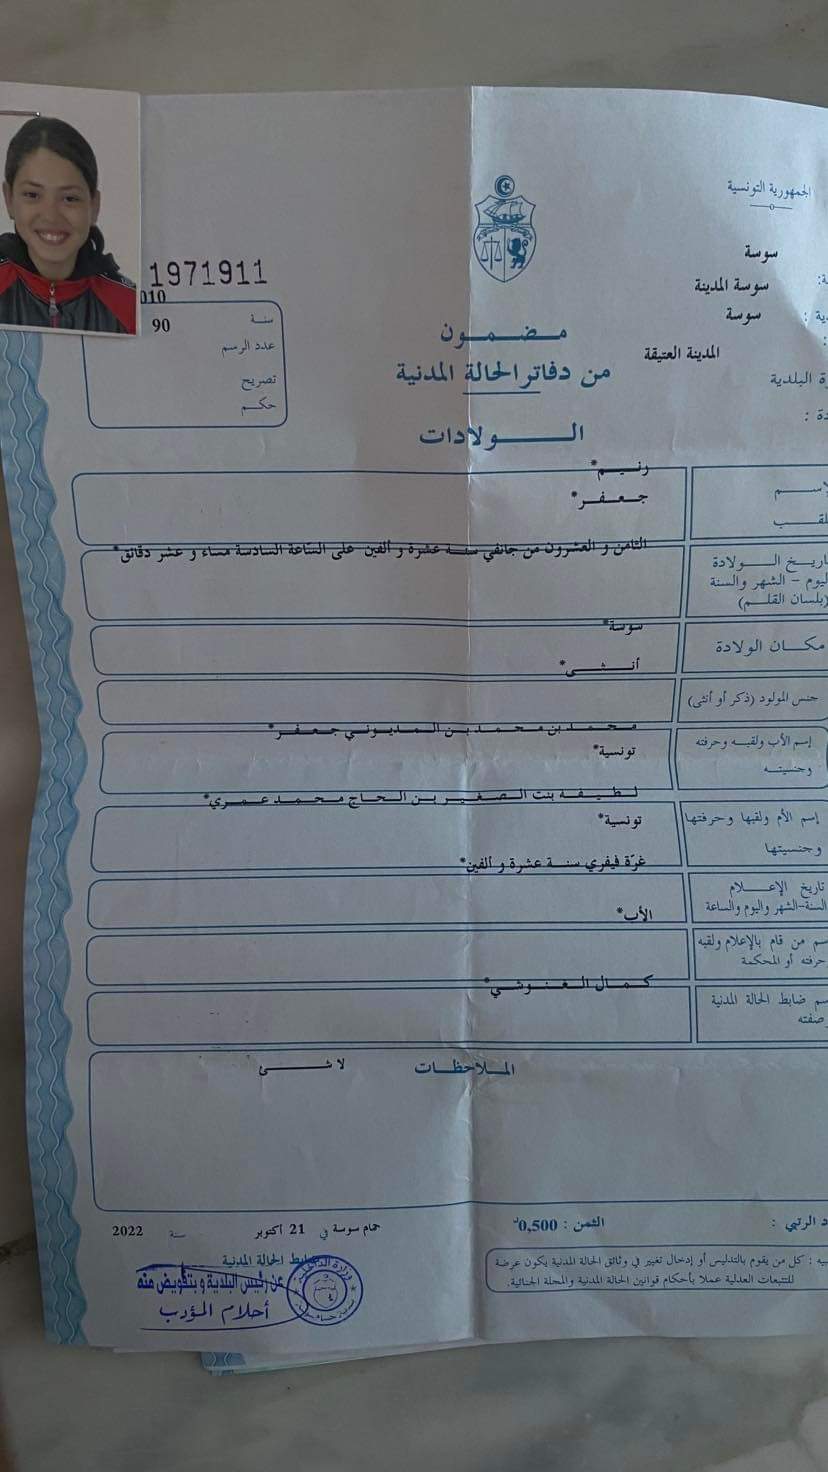 الجمهورية التونسية
سوسة
سوسة المدينة
سوسة
المدينة العتيقة
البلدية
1971911
010
سنة
90
عدد الرسم
تصريح
حكم
مضمون
من دفاتر الحالة المدنية
الولادات
رنيم*
جعفر*
الولادة
اليوم - الشهر والسنة
(بلسان القلم)
الثامن و العشرون من جانفي سنة عشرة و ألفين على الساعة السادسة مساء و عشر دقائق*
مكان الولادة
سوسة*
جنس المولود (ذكر أو أنثى)
أنثى*
إسم الأب ولقبه وحرفته
وجنسيته
محمد بن محمد بن المديوني جعفر*
تونسية*
إسم الأم ولقبها وحرفتها
وجنسيتها
لطيفة بنت الصغير بن الحاج محمد عمري*
تونسية*
تاريخ الإعلام
السنة-الشهر واليوم والساعة
غرّة فيفري سنة عشرة و ألفين*
من قام بالإعلام ولقبه
حرفته أو المحكمة
الأب*
ضابط الحالة المدنية
صفته
كمال الغنوشي*
الملاحظات
لا شئ
الثمن : 0,500د
حمام سوسة في 21 أكتوبر سنة 2022
ضابط الحالة المدنية
عن رئيس البلدية و بتفويض منه
أحلام المؤدب
وزارة الداخلية
: كل من يقوم بالتدليس أو إدخال تغيير في وثائق الحالة المدنية يكون عرضة
للتتبعات العدلية عملا بأحكام قوانين الحالة المدنية والمجلة الجنائية.